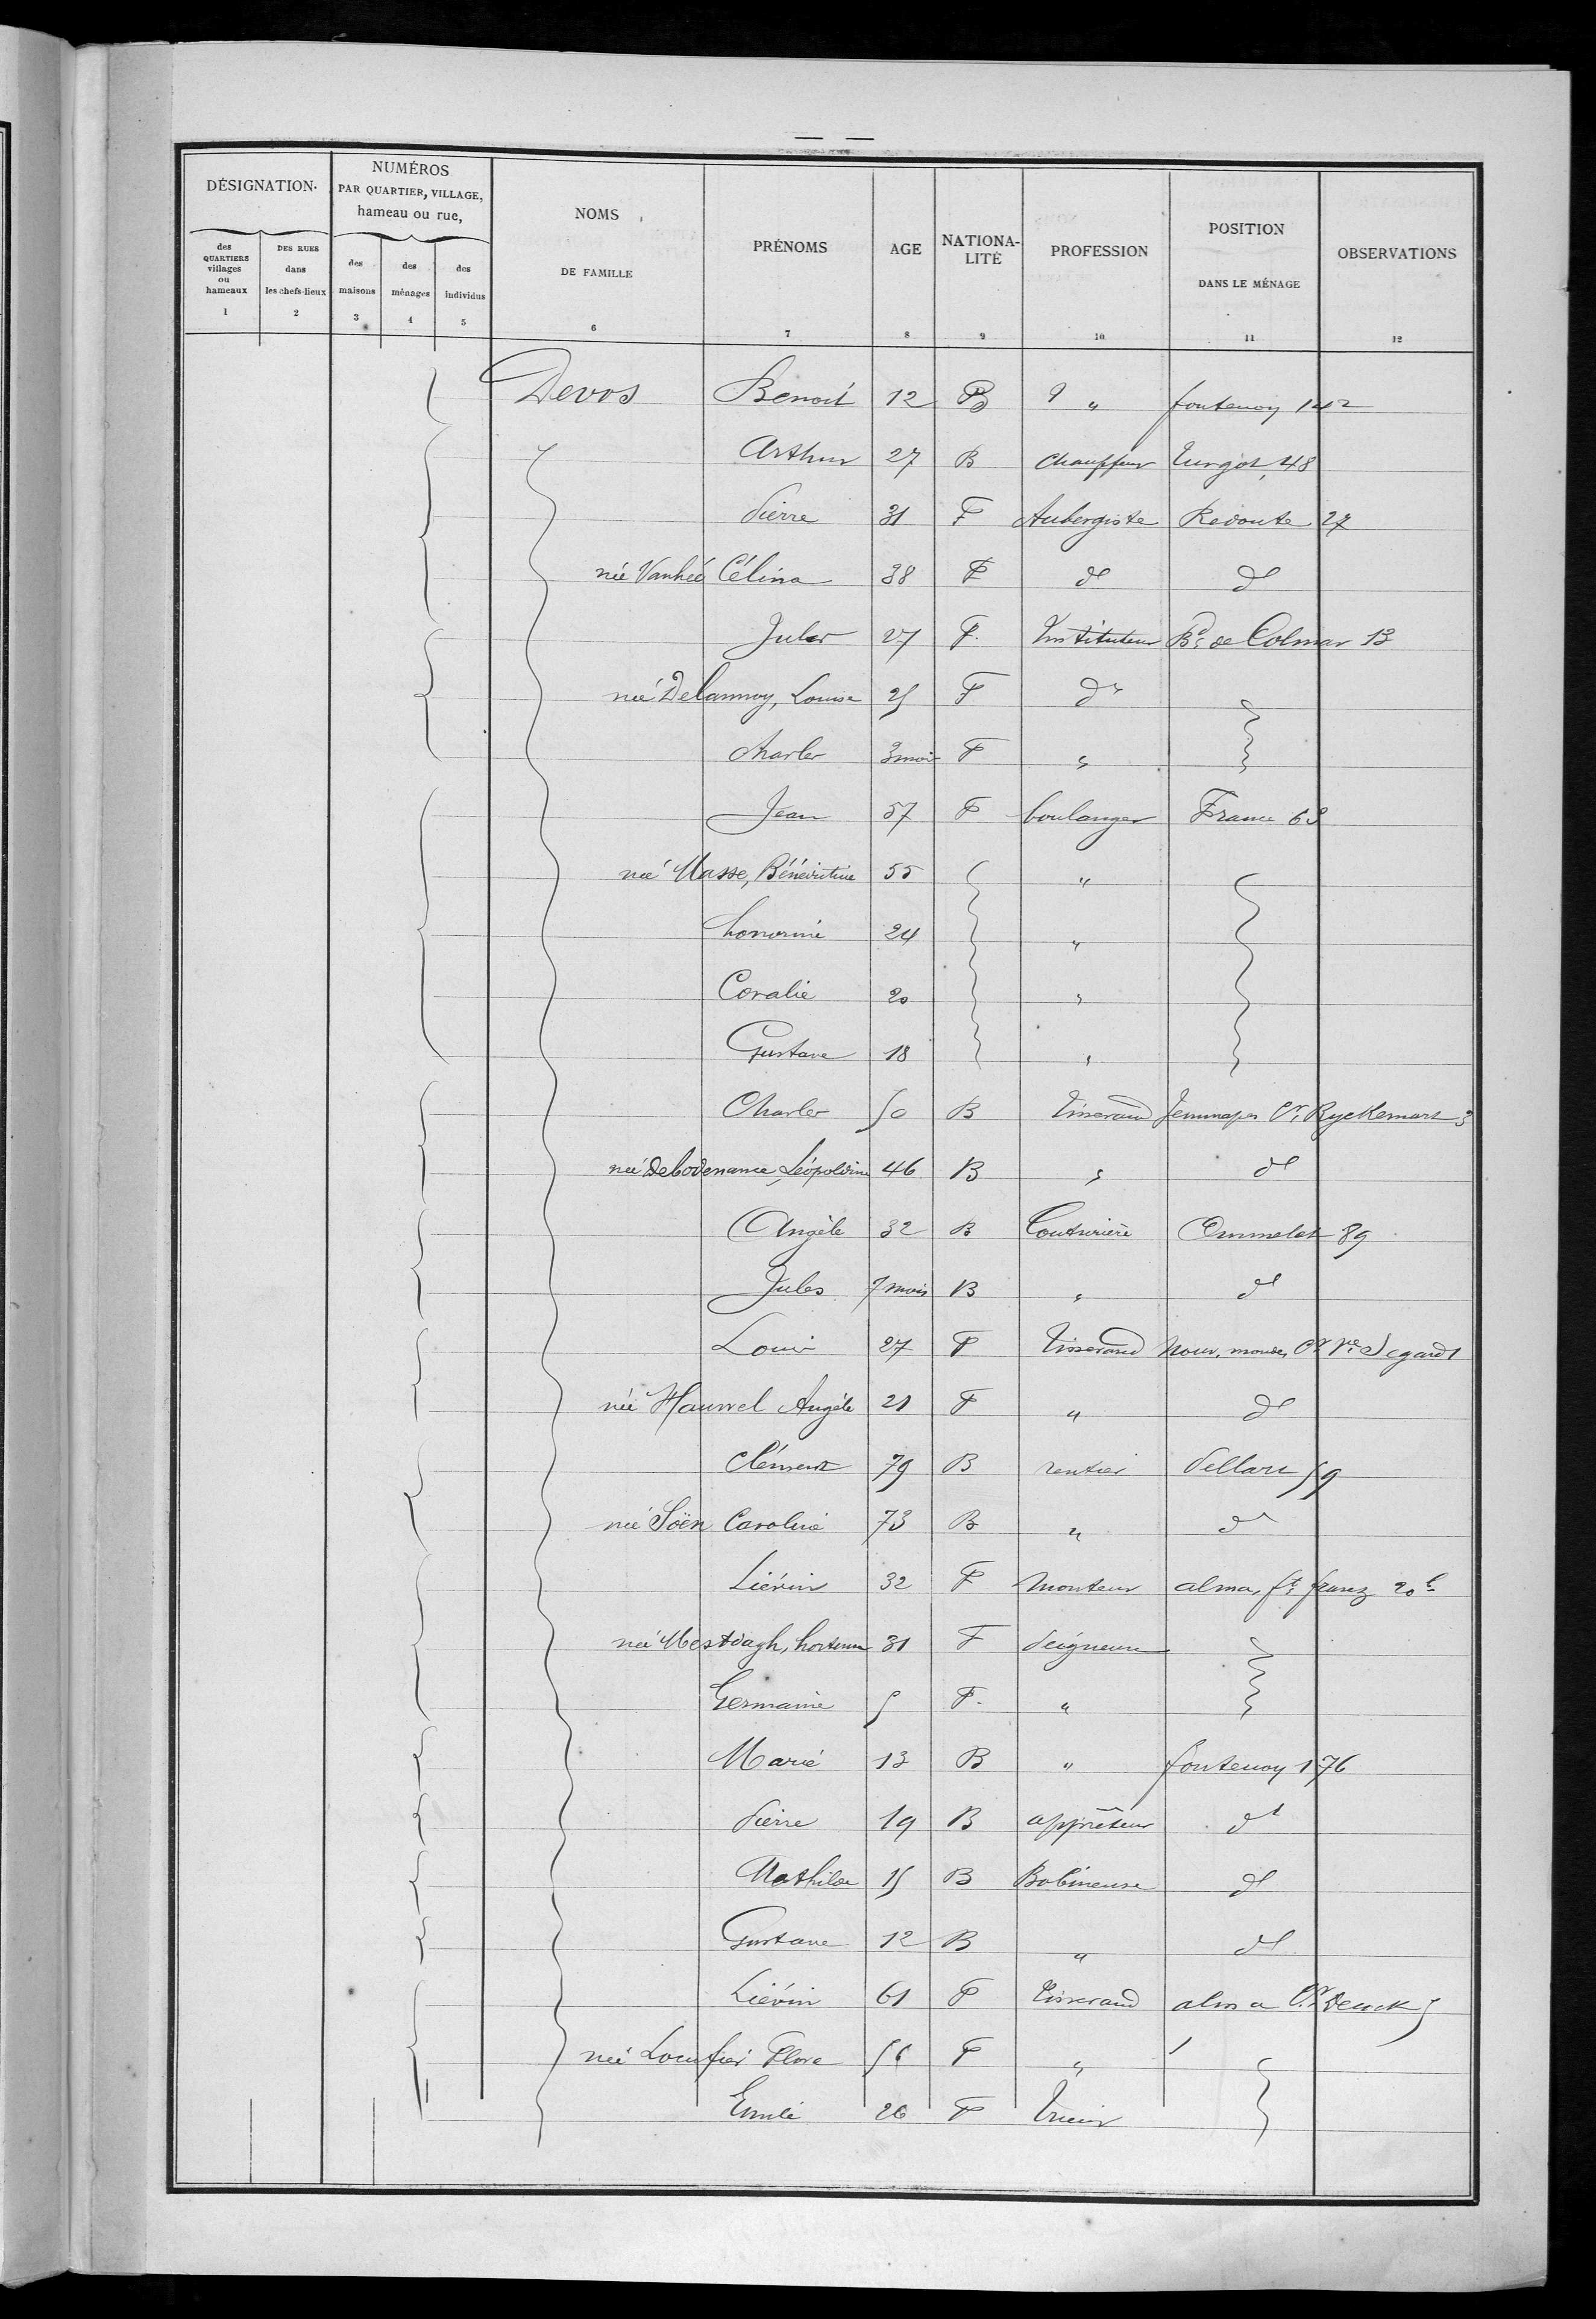 DÉSIGNATION
NUMÉROS PAR QUARTIER, VILLAGE, hameau ou rue,
NOMS DE FAMILLE
PRÉNOMS
AGE
NATIONALITÉ
PROFESSION
POSITION DANS LE MÉNAGE
OBSERVATIONS
des QUARTIERS villages ou hameaux
DES RUES dans les chefs-lieux
des maisons
des ménages
des individus
1 2 3 4 5 6 7 8 9 10 11 12
Devos Benoit 12 B " fontenoy 142
Arthur 27 B chauffeur Turgot, 48
Pierre 31 F Aubergiste Redoute 27
née Vanhée Célina 38 F d° d°
Jules 27 F. Instituteur Bd de Colmar 13
née Delannoy, Louise 25 F d°
Charles 3 mois F "
Jean 57 F boulanger France 63
née Masse, Bénédictine 55 "
honorine 24 "
Coralie 20 "
Gustave 18 "
Charles 50 B Tisserand Jemmapes Cr Ryckemart 3
née Debodenance, Léopoldine 46 B " d°
Angèle 32 B Couturière Ommelet 89
Jules 7 mois B " d°
Louis 27 F Tisserand Nouv. monde, Cr Ve Segard 1
née Hauwel Angèle 21 F " d°
Clément 79 B rentier Pellart 59
née Soën Caroline 73 B " d°
Liévin 32 F Monteur alma, ft franz 20b
née Mestdagh, hortense 31 F Peigneuse
Germaine 5 F. "
Marie 13 B " fontenoy 176
Pierre 19 B apprêteur d°
Mathilde 15 B Bobineuse d°
Gustave 12 B " d°
Liévin 61 F Tisserand alma Cr Deuck 5
née Locufier Flore 56 F "
Emile 26 F Trieur